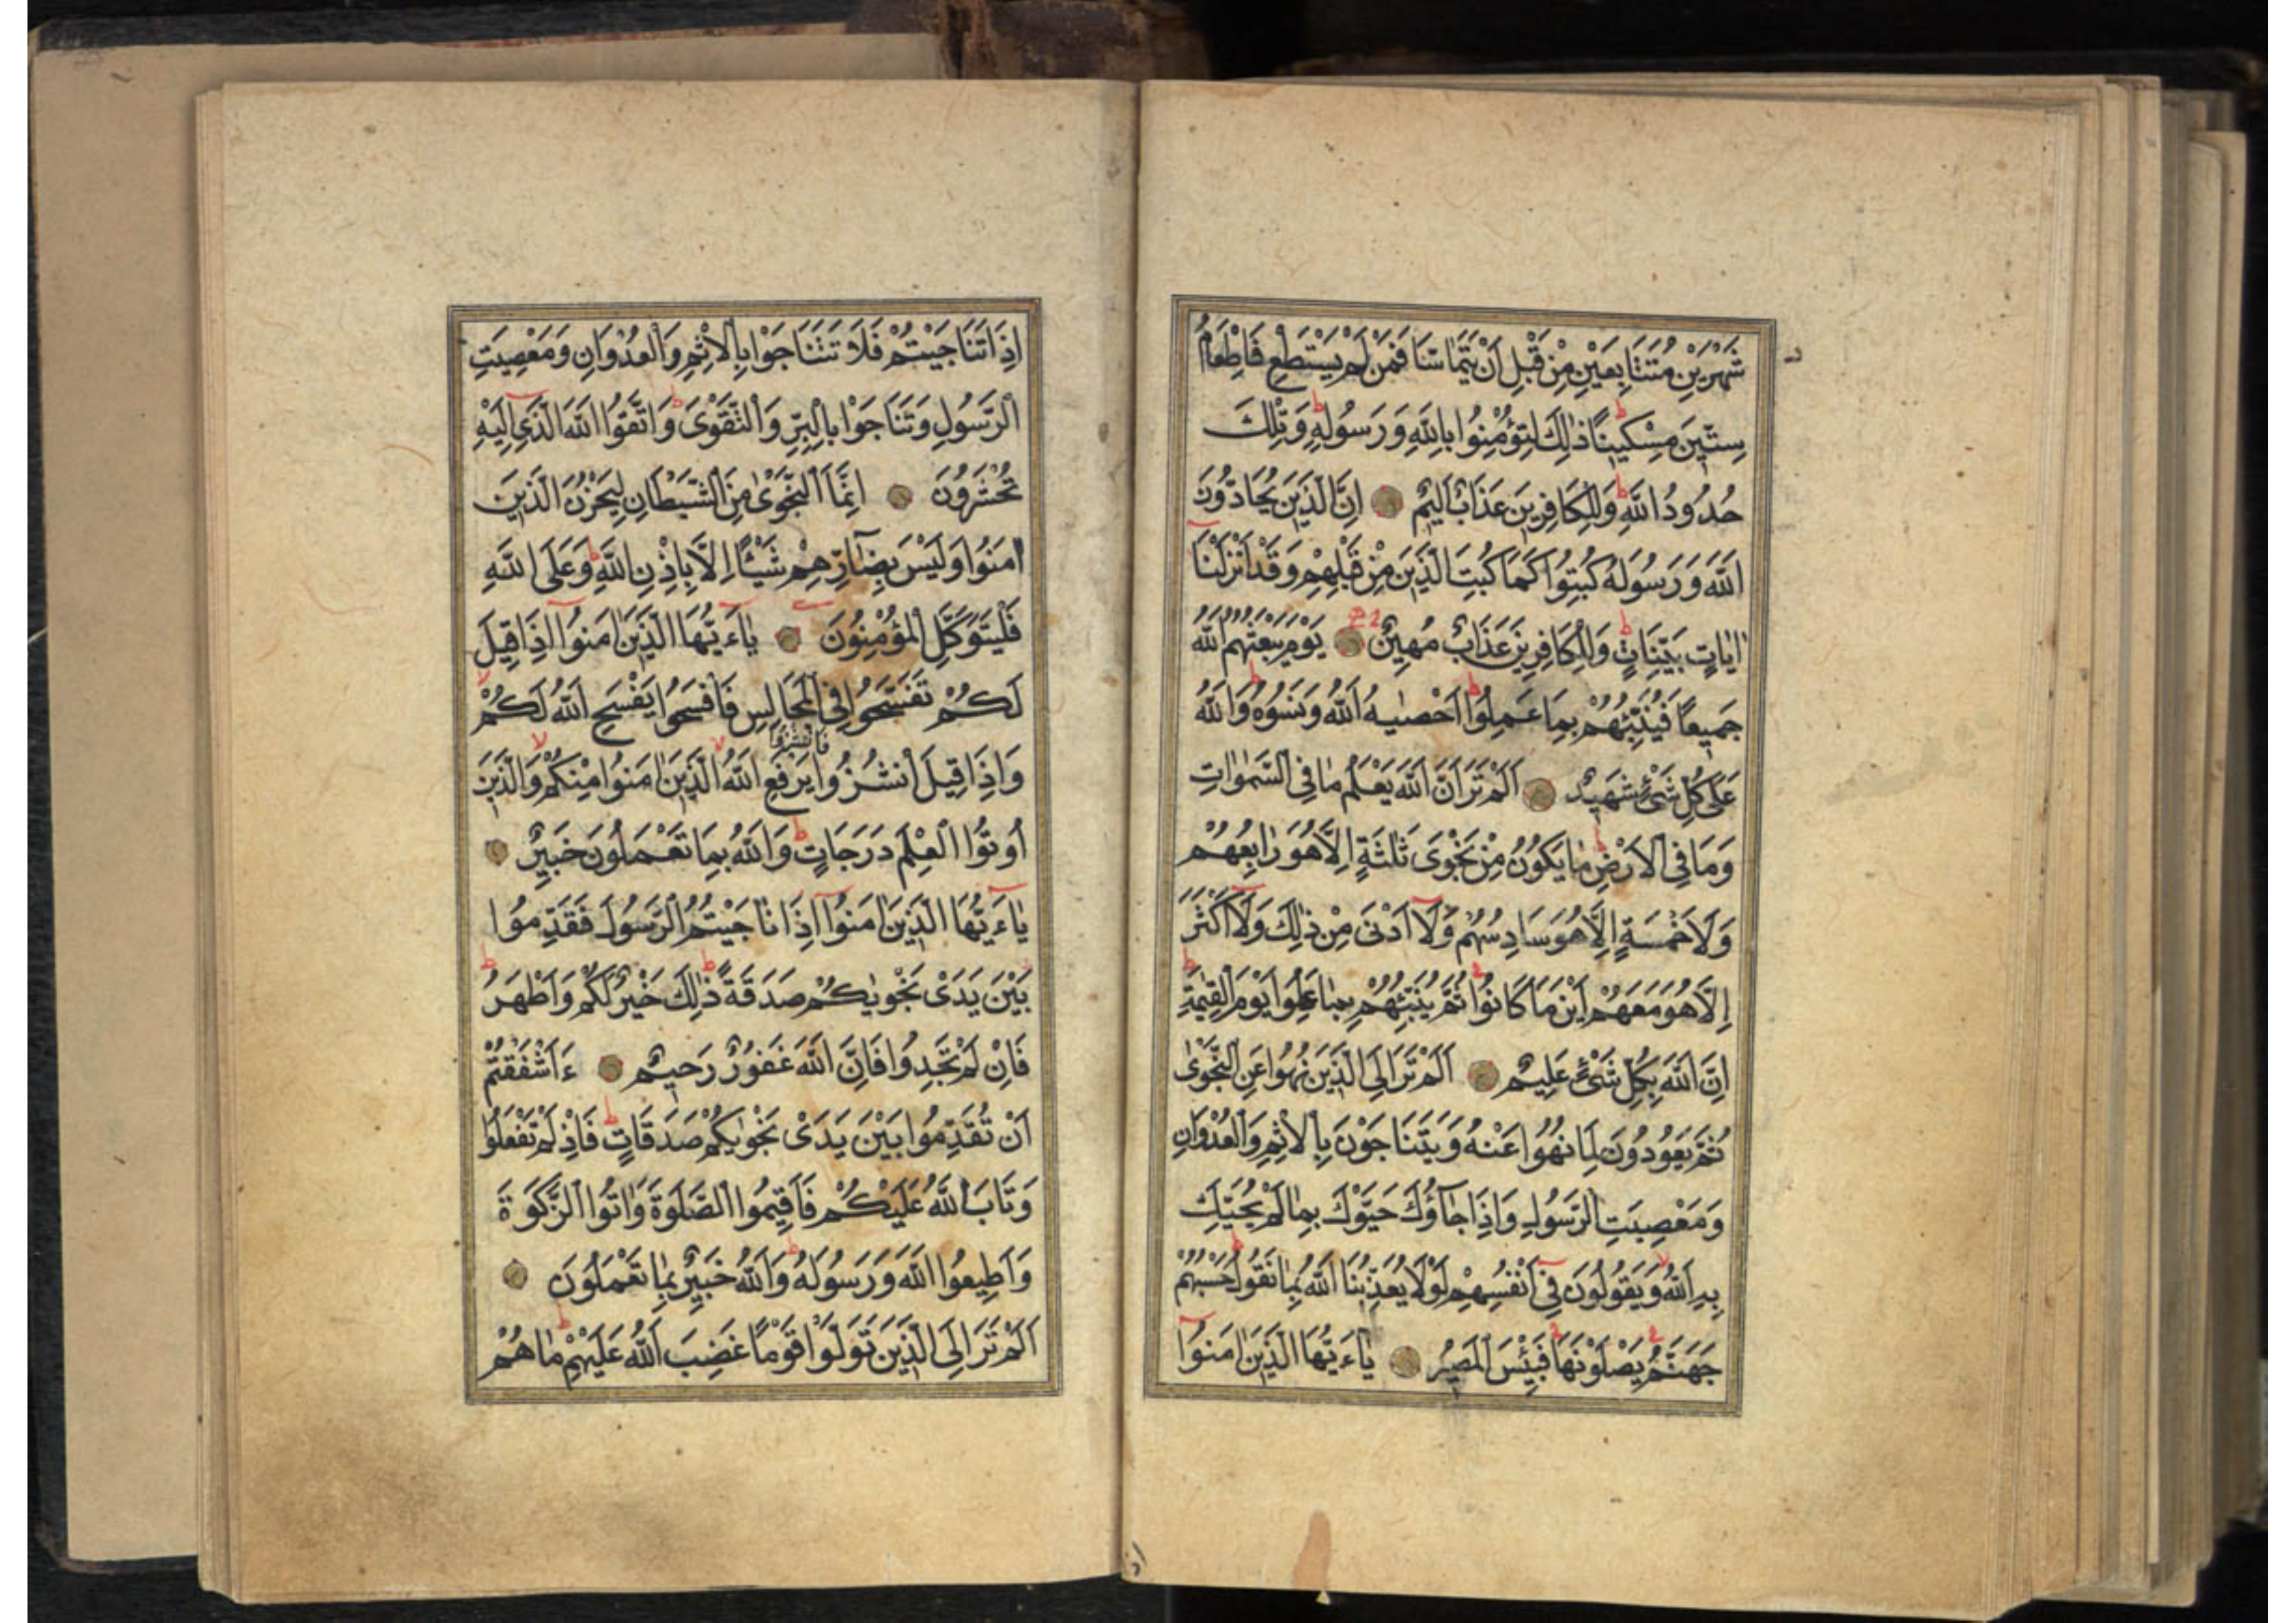 شَهْرَيْنِ مُتَتَابِعَيْنِ مِنْ قَبْلِ أَنْ يَتَمَاسَّا فَمَنْ لَمْ يَسْتَطِعْ فَاِطْعَامُ
سِتِّينَ مِسْكِينًا ذٰلِكَ لِتُؤْمِنُوا بِاللّٰهِ وَرَسُولِهِ وَتِلْكَ
حُدُودُ اللّٰهِ وَلِلْكَافِرِينَ عَذَابٌ اَلِيمٌ اِنَّ الَّذِينَ يُحَادُّونَ
اللّٰهَ وَرَسُولَهُ كُبِتُوا كَمَا كُبِتَ الَّذِينَ مِنْ قَبْلِهِمْ وَقَدْ اَنْزَلْنَا
اٰيَاتٍ بَيِّنَاتٍ وَلِلْكَافِرِينَ عَذَابٌ مُهِينٌ يَوْمَ يَبْعَثُهُمُ اللّٰهُ
جَمِيعًا فَيُنَبِّئُهُمْ بِمَا عَمِلُوا اَحْصٰيهُ اللّٰهُ وَنَسُوهُ وَاللّٰهُ
عَلٰى كُلِّ شَىْءٍ شَهِيدٌ اَلَمْ تَرَ اَنَّ اللّٰهَ يَعْلَمُ مَا فِى السَّمٰوَاتِ
وَمَا فِى الْاَرْضِ مَا يَكُونُ مِنْ نَجْوٰى ثَلٰثَةٍ اِلَّا هُوَ رَابِعُهُمْ
وَلَا خَمْسَةٍ اِلَّا هُوَ سَادِسُهُمْ وَلَا اَدْنٰى مِنْ ذٰلِكَ وَلَا اَكْثَرَ
اِلَّا هُوَ مَعَهُمْ اَيْنَ مَا كَانُوا ثُمَّ يُنَبِّئُهُمْ بِمَا عَمِلُوا يَوْمَ الْقِيٰمَةِ
اِنَّ اللّٰهَ بِكُلِّ شَىْءٍ عَلِيمٌ اَلَمْ تَرَ اِلَى الَّذِينَ نُهُوا عَنِ النَّجْوٰى
ثُمَّ يَعُودُونَ لِمَا نُهُوا عَنْهُ وَيَتَنَاجَوْنَ بِالْاِثْمِ وَالْعُدْوَانِ
وَمَعْصِيَتِ الرَّسُولِ وَاِذَا جَاؤُكَ حَيَّوْكَ بِمَا لَمْ يُحَيِّكَ
بِهِ اللّٰهُ وَيَقُولُونَ فِى اَنْفُسِهِمْ لَوْلَا يُعَذِّبُنَا اللّٰهُ بِمَا نَقُولُ حَسْبُهُمْ
جَهَنَّمُ يَصْلَوْنَهَا فَبِئْسَ الْمَصِيرُ يَاءَيُّهَا الَّذِينَ اٰمَنُوا
اِذَا تَنَاجَيْتُمْ فَلَا تَتَنَاجَوْا بِالْاِثْمِ وَالْعُدْوَانِ وَمَعْصِيَتِ
الرَّسُولِ وَتَنَاجَوْا بِالْبِرِّ وَالتَّقْوٰى وَاتَّقُوا اللّٰهَ الَّذِى اِلَيْهِ
تُحْشَرُونَ اِنَّمَا النَّجْوٰى مِنَ الشَّيْطَانِ لِيَحْزُنَ الَّذِينَ
اٰمَنُوا وَلَيْسَ بِضَارِّهِمْ شَيْئًا اِلَّا بِاِذْنِ اللّٰهِ وَعَلَى اللّٰهِ
فَلْيَتَوَكَّلِ الْمُؤْمِنُونَ يَاءَيُّهَا الَّذِينَ اٰمَنُوا اِذَا قِيلَ
لَكُمْ تَفَسَّحُوا فِى الْمَجَالِسِ فَافْسَحُوا يَفْسَحِ اللّٰهُ لَكُمْ
فَانْشُزُوا
وَاِذَا قِيلَ انْشُزُوا يَرْفَعِ اللّٰهُ الَّذِينَ اٰمَنُوا مِنْكُمْ وَالَّذِينَ
اُوتُوا الْعِلْمَ دَرَجَاتٍ وَاللّٰهُ بِمَا تَعْمَلُونَ خَبِيرٌ
يَاءَيُّهَا الَّذِينَ اٰمَنُوا اِذَا نَاجَيْتُمُ الرَّسُولَ فَقَدِّمُوا
بَيْنَ يَدَىْ نَجْوٰيكُمْ صَدَقَةً ذٰلِكَ خَيْرٌ لَكُمْ وَاَطْهَرُ
فَاِنْ لَمْ تَجِدُوا فَاِنَّ اللّٰهَ غَفُورٌ رَحِيمٌ ءَاَشْفَقْتُمْ
اَنْ تُقَدِّمُوا بَيْنَ يَدَىْ نَجْوٰيكُمْ صَدَقَاتٍ فَاِذْ لَمْ تَفْعَلُوا
وَتَابَ اللّٰهُ عَلَيْكُمْ فَاَقِيمُوا الصَّلٰوةَ وَاٰتُوا الزَّكٰوةَ
وَاَطِيعُوا اللّٰهَ وَرَسُولَهُ وَاللّٰهُ خَبِيرٌ بِمَا تَعْمَلُونَ
اَلَمْ تَرَ اِلَى الَّذِينَ تَوَلَّوْا قَوْمًا غَضِبَ اللّٰهُ عَلَيْهِمْ مَا هُمْ